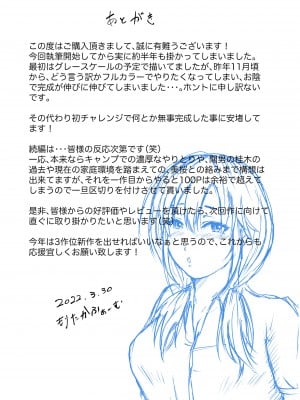 あとがき
この度はご購入頂きまして、誠に有難うございます！
今回執筆開始してから実に約半年も掛かってしまいました。
最初はグレースケールの予定で描いてましたが、昨年11月頃
から、どう言う訳かフルカラーでやりたくなってしまい、お陰
で完成が伸びに伸びてしまいました・・・。ホントに申し訳ない
です。
その代わり初チャレンジで何とか無事完成した事に安堵して
ます！
続編は・・・皆様の反応次第です(笑)
一応、本来ならキャンプでの濃厚なやりとりや、間男の桂木の
過去や現在の家庭環境を踏まえての、美桜との絡みまで構想は
出来てますが、それを一作目からやると100Pは余裕で超えて
しまうので一旦区切りを付けさせて貰いました。
是非、皆様からの好評価やレビューを頂けたら、次回作に向けて
直ぐに取り掛かりたいと思います(笑)
今年は3作位新作を出せればいいなぁと思うので、これからも
応援宜しくお願い致します！
2022.3.30